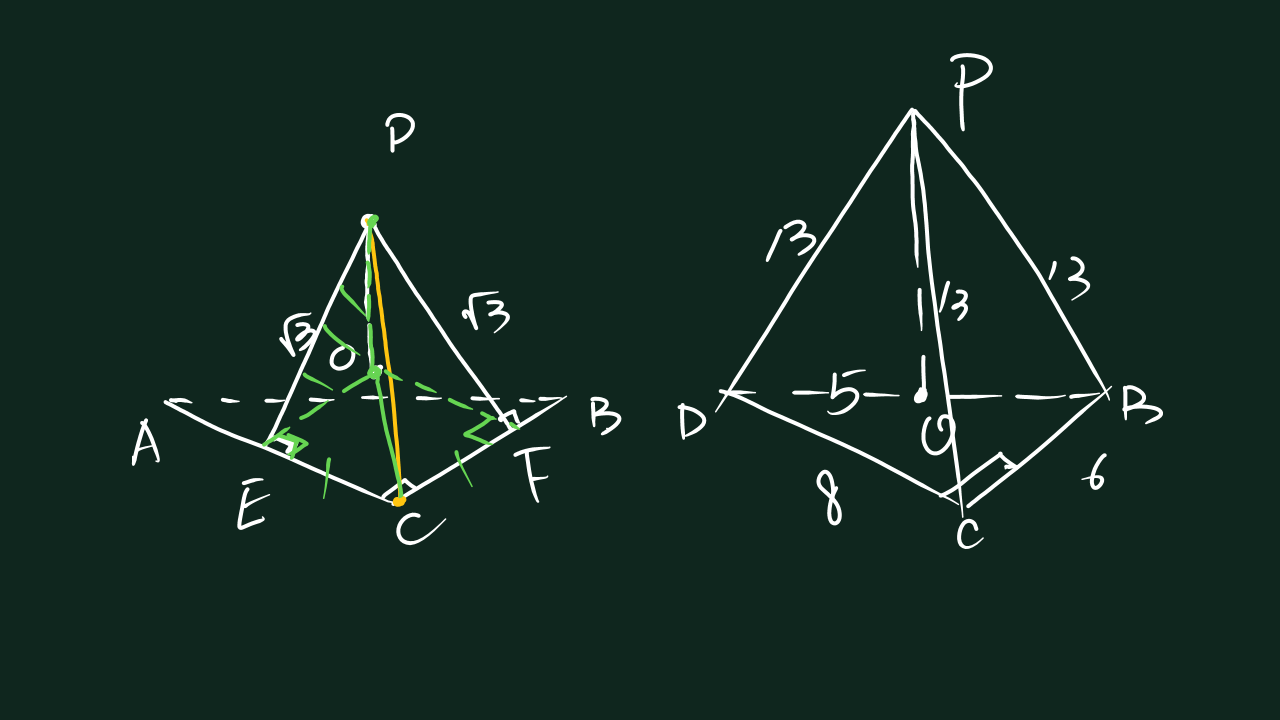 P
√3
√3
O
A
B
E
F
C
P
13
13
13
D
5
O
B
8
6
C